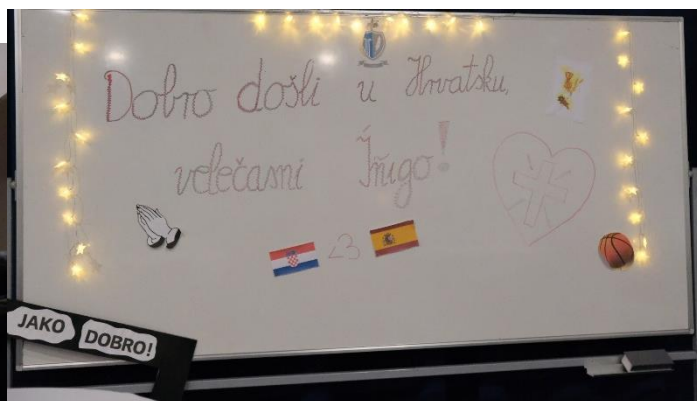 Dobro došli u Hrvatsku,
velečasni Íñigo!
<3
JAKO DOBRO!